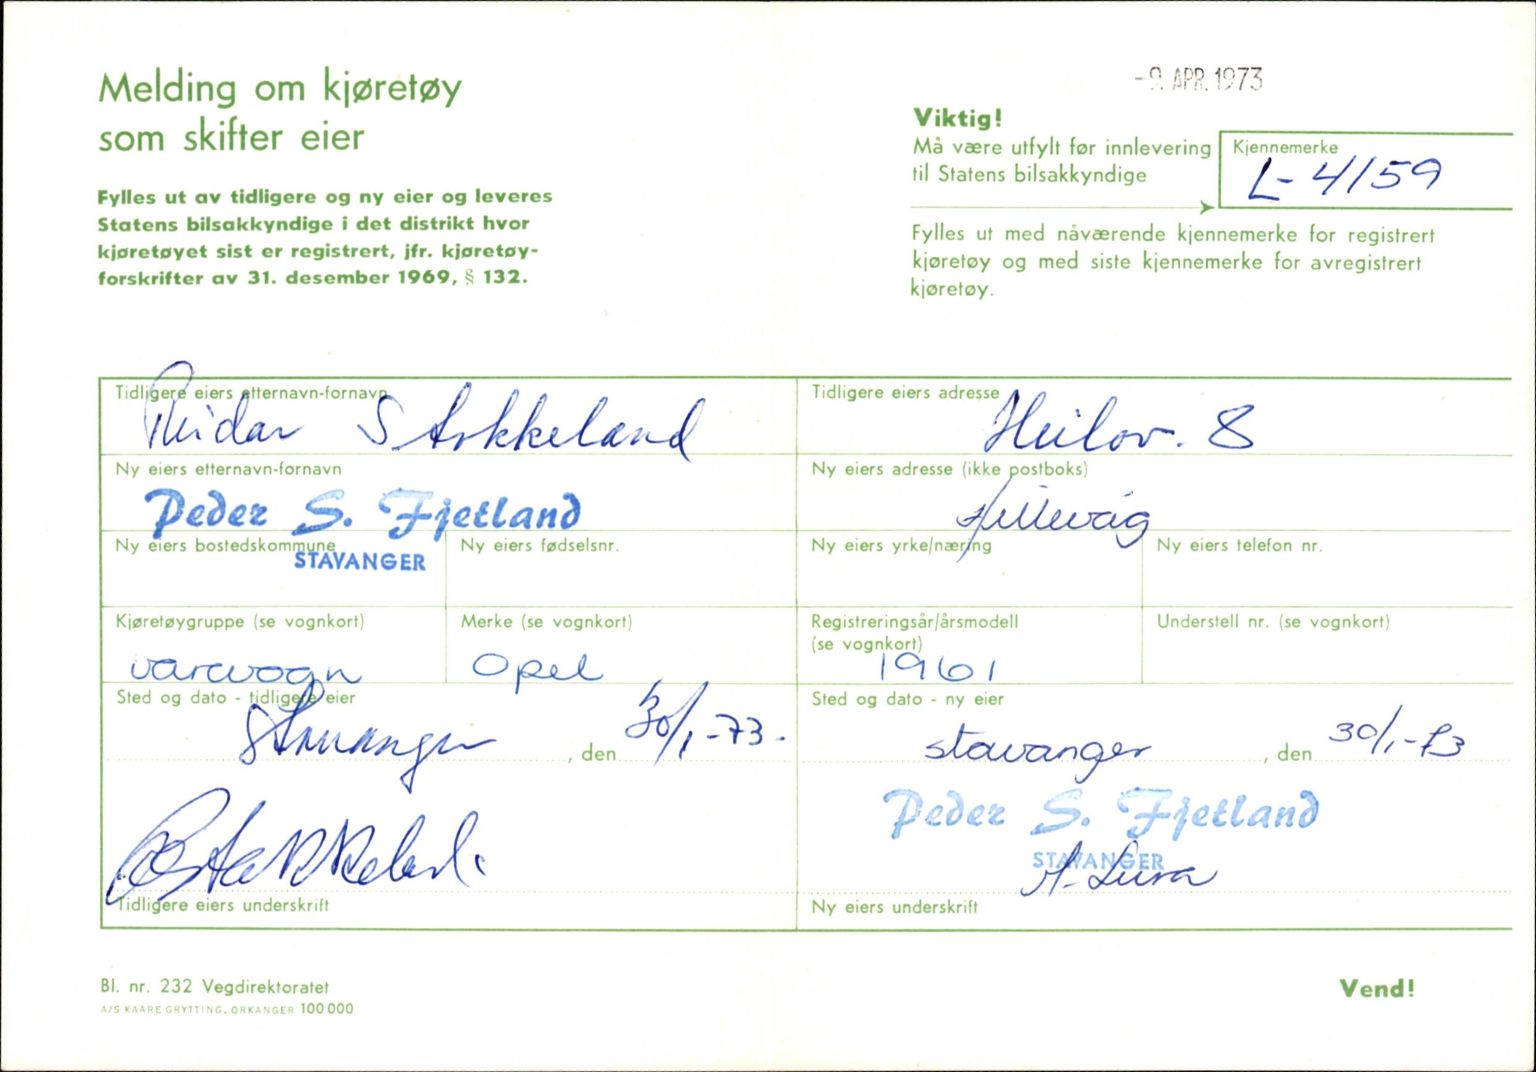 Melding om kjøretøy
som skifter eier
Fylles ut av tidligere og ny eier og leveres
Statens bilsakkyndige i det distrikt hvor
kjøretøyet sist er registrert, jfr. kjøretøy-
forskrifter av 31. desember 1969, § 132.
-9. APR. 1973
Viktig!
Må være utfylt før innlevering
til Statens bilsakkyndige
Kjennemerke
L-4159
Fylles ut med nåværende kjennemerke for registrert
kjøretøy og med siste kjennemerke for avregistrert
kjøretøy.
Tidligere eiers etternavn-fornavn
Reidar Stokkeland
Tidligere eiers adresse
Heilov. 8
Ny eiers etternavn-fornavn
Peder S. Fjetland
STAVANGER
Ny eiers adresse (ikke postboks)
Hillevåg
Ny eiers bostedskommune
Ny eiers fødselsnr.
Ny eiers yrke/næring
Ny eiers telefon nr.
Kjøretøygruppe (se vognkort)
varevogn
Merke (se vognkort)
Opel
Registreringsår/årsmodell
(se vognkort)
1961
Understell nr. (se vognkort)
Sted og dato - tidligere eier
Stavanger, den 30/1-73.
Sted og dato - ny eier
stavanger, den 30/1-73
Peder S. Fjetland
STAVANGER
A. Lura
Tidligere eiers underskrift
Ny eiers underskrift
Bl. nr. 232 Vegdirektoratet
A/S KAARE GRYTTING, ORKANGER 100 000
Vend!